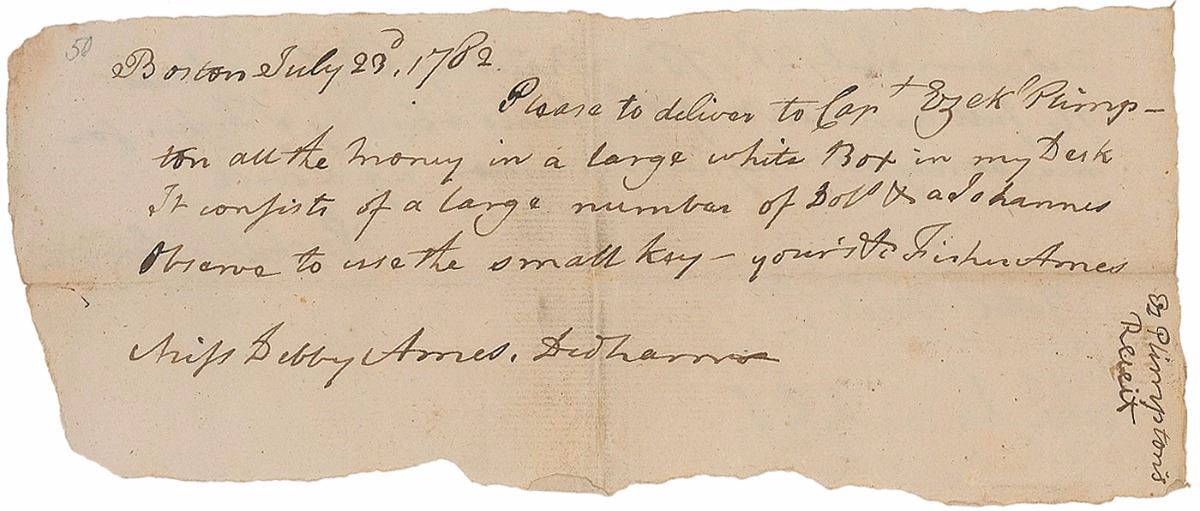 50
Boston July 23d, 1782.
Please to deliver to Capt Ezekl Plimp-
ton all the money in a large white Box in my Desk
It consists of a large number of Dolls & a Johannes
Observe to use the small key - your's &c Fisher Ames
Miss Debby Ames. Dedham
Ez Plimpton's
Receit